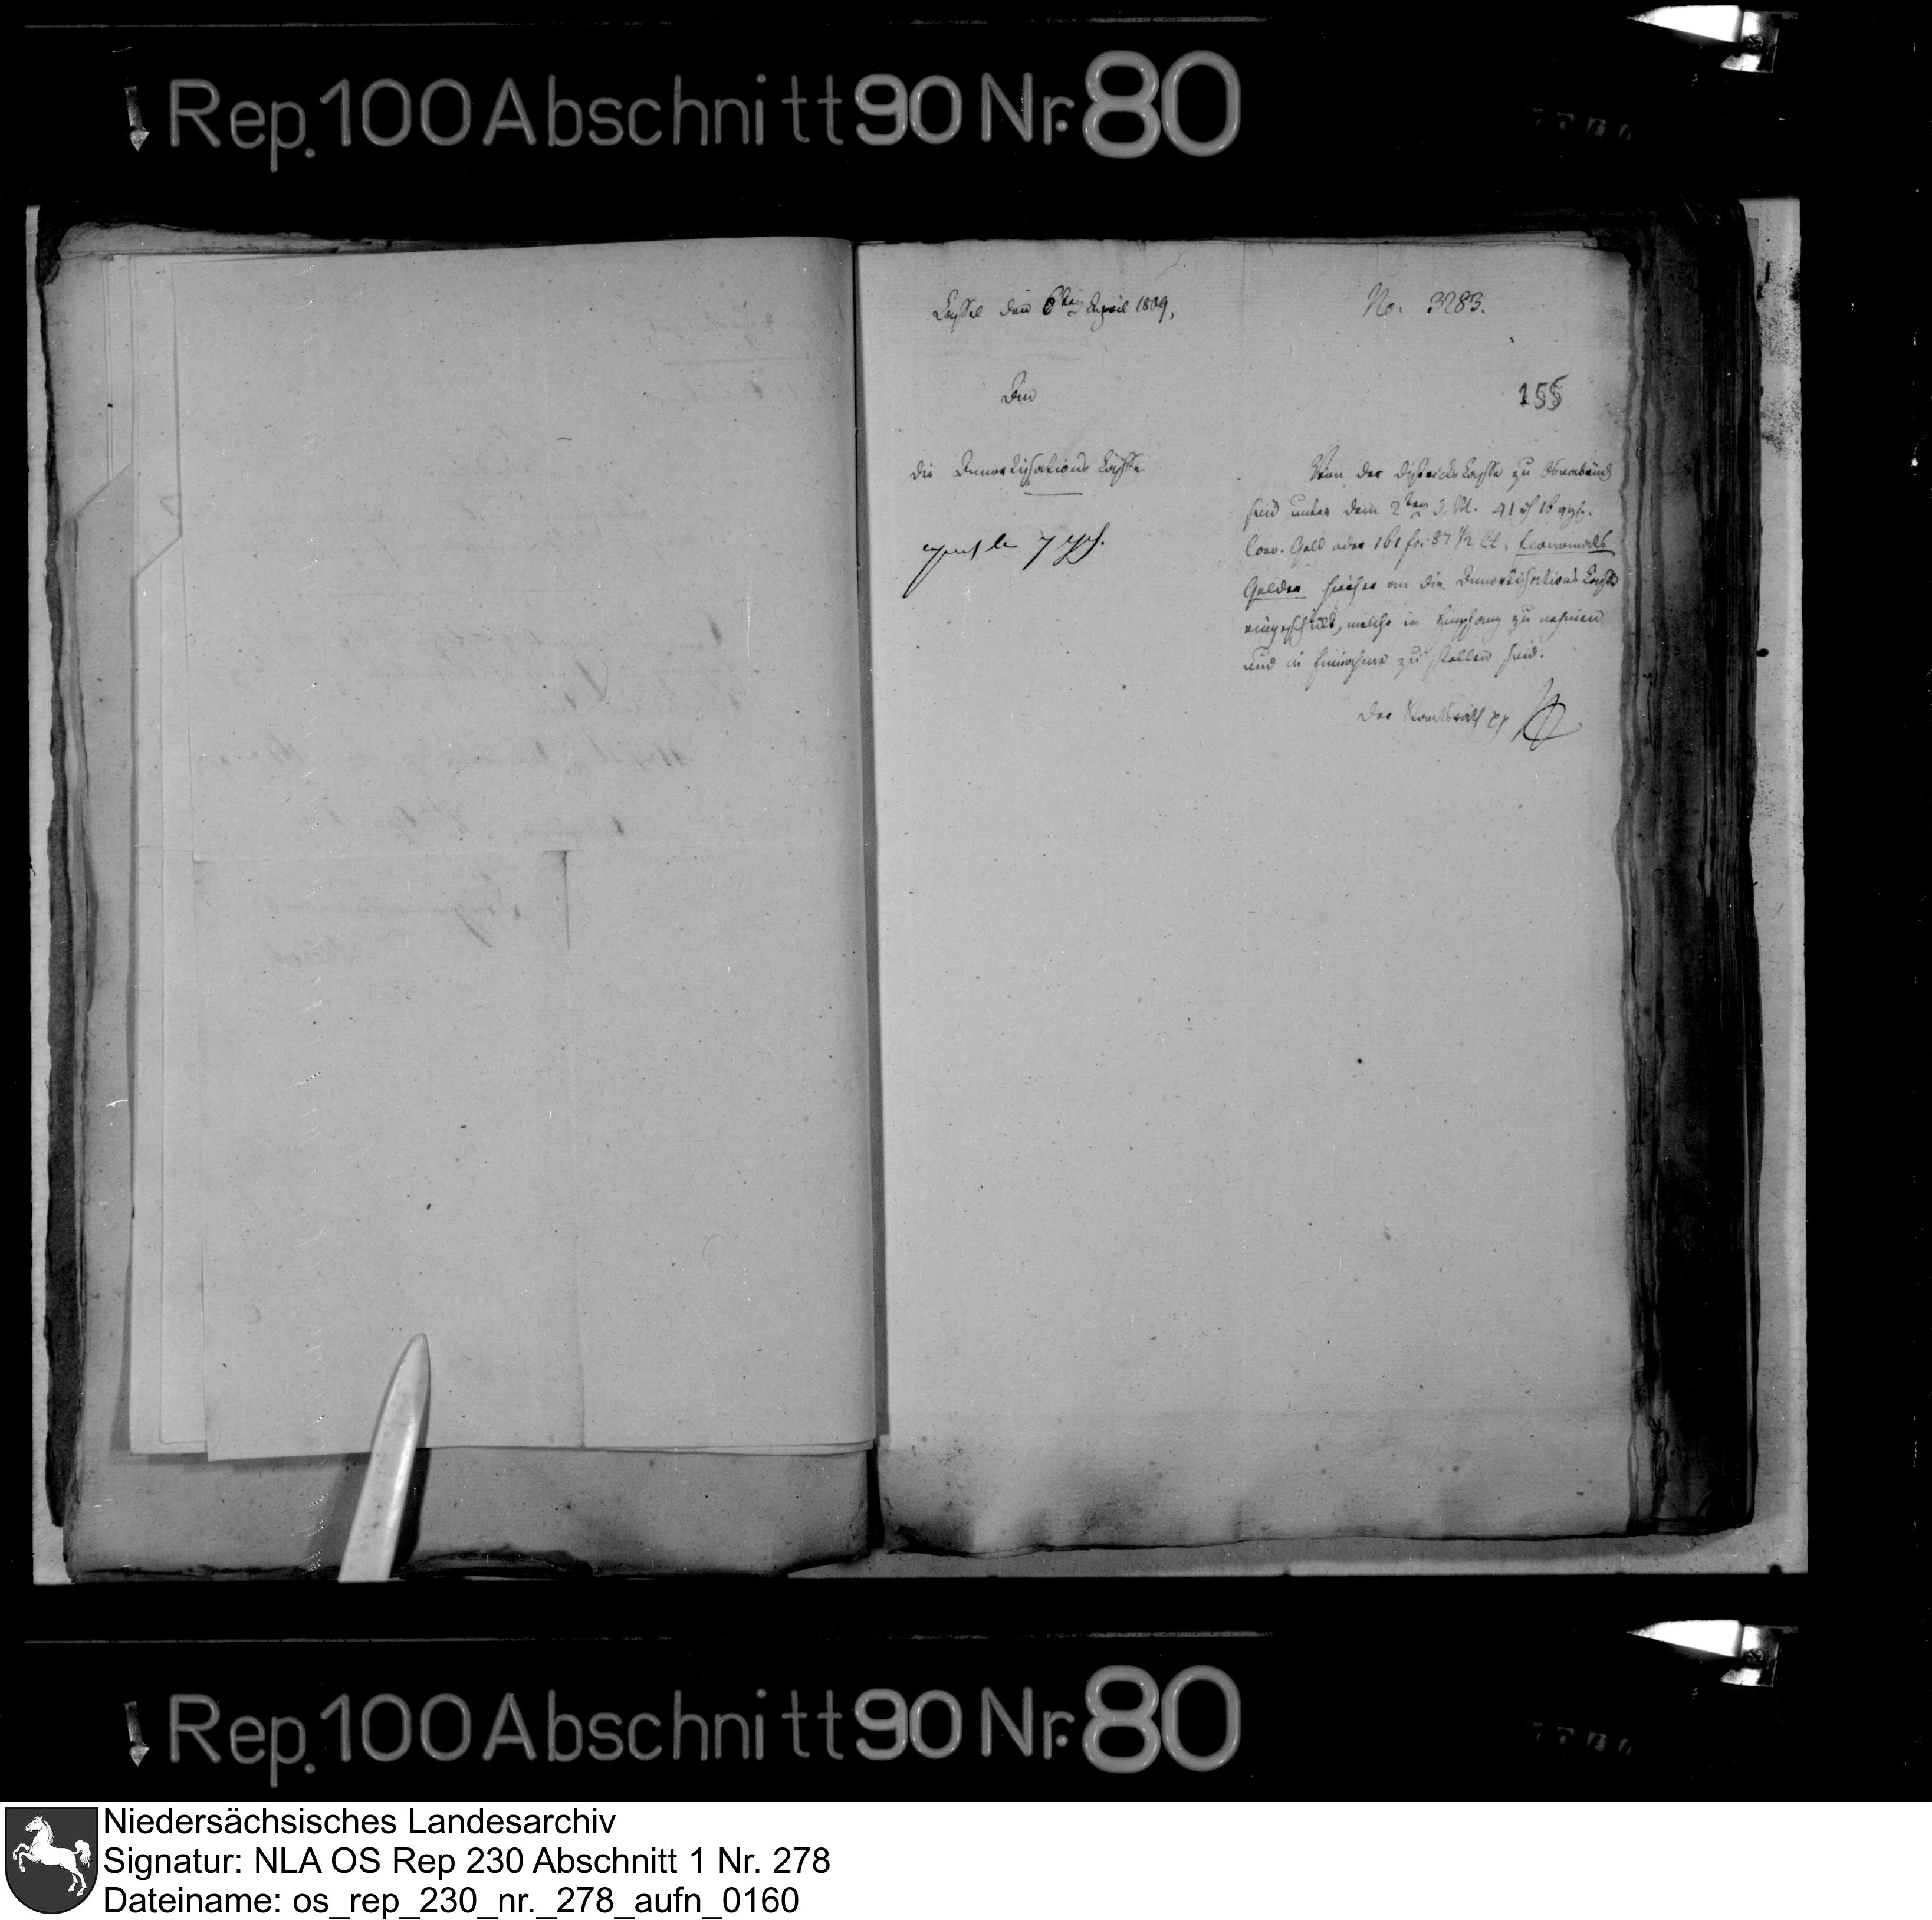 Rep. 100 Abschnitt 90 Nr. 80
Cassel den 6ten April 1809,
No. 3283.
An
155
die Amortisations Casse
Von der Districts Casse zu Osnabrück
sind unter dem 2ten d. M. 41 rth 16 ggr.
Conv. Geld oder 161 fr. 87 1/2 Ct.
Gelder hierher an die Amortisations Casse
eingeschickt, welche in Empfang zu nehmen
und in Einnahme zu stellen sind.
Der Staatsrath
Rep. 100 Abschnitt 90 Nr. 80
Niedersächsisches Landesarchiv
Signatur: NLA OS Rep 230 Abschnitt 1 Nr. 278
Dateiname: os_rep_230_nr._278_aufn_0160